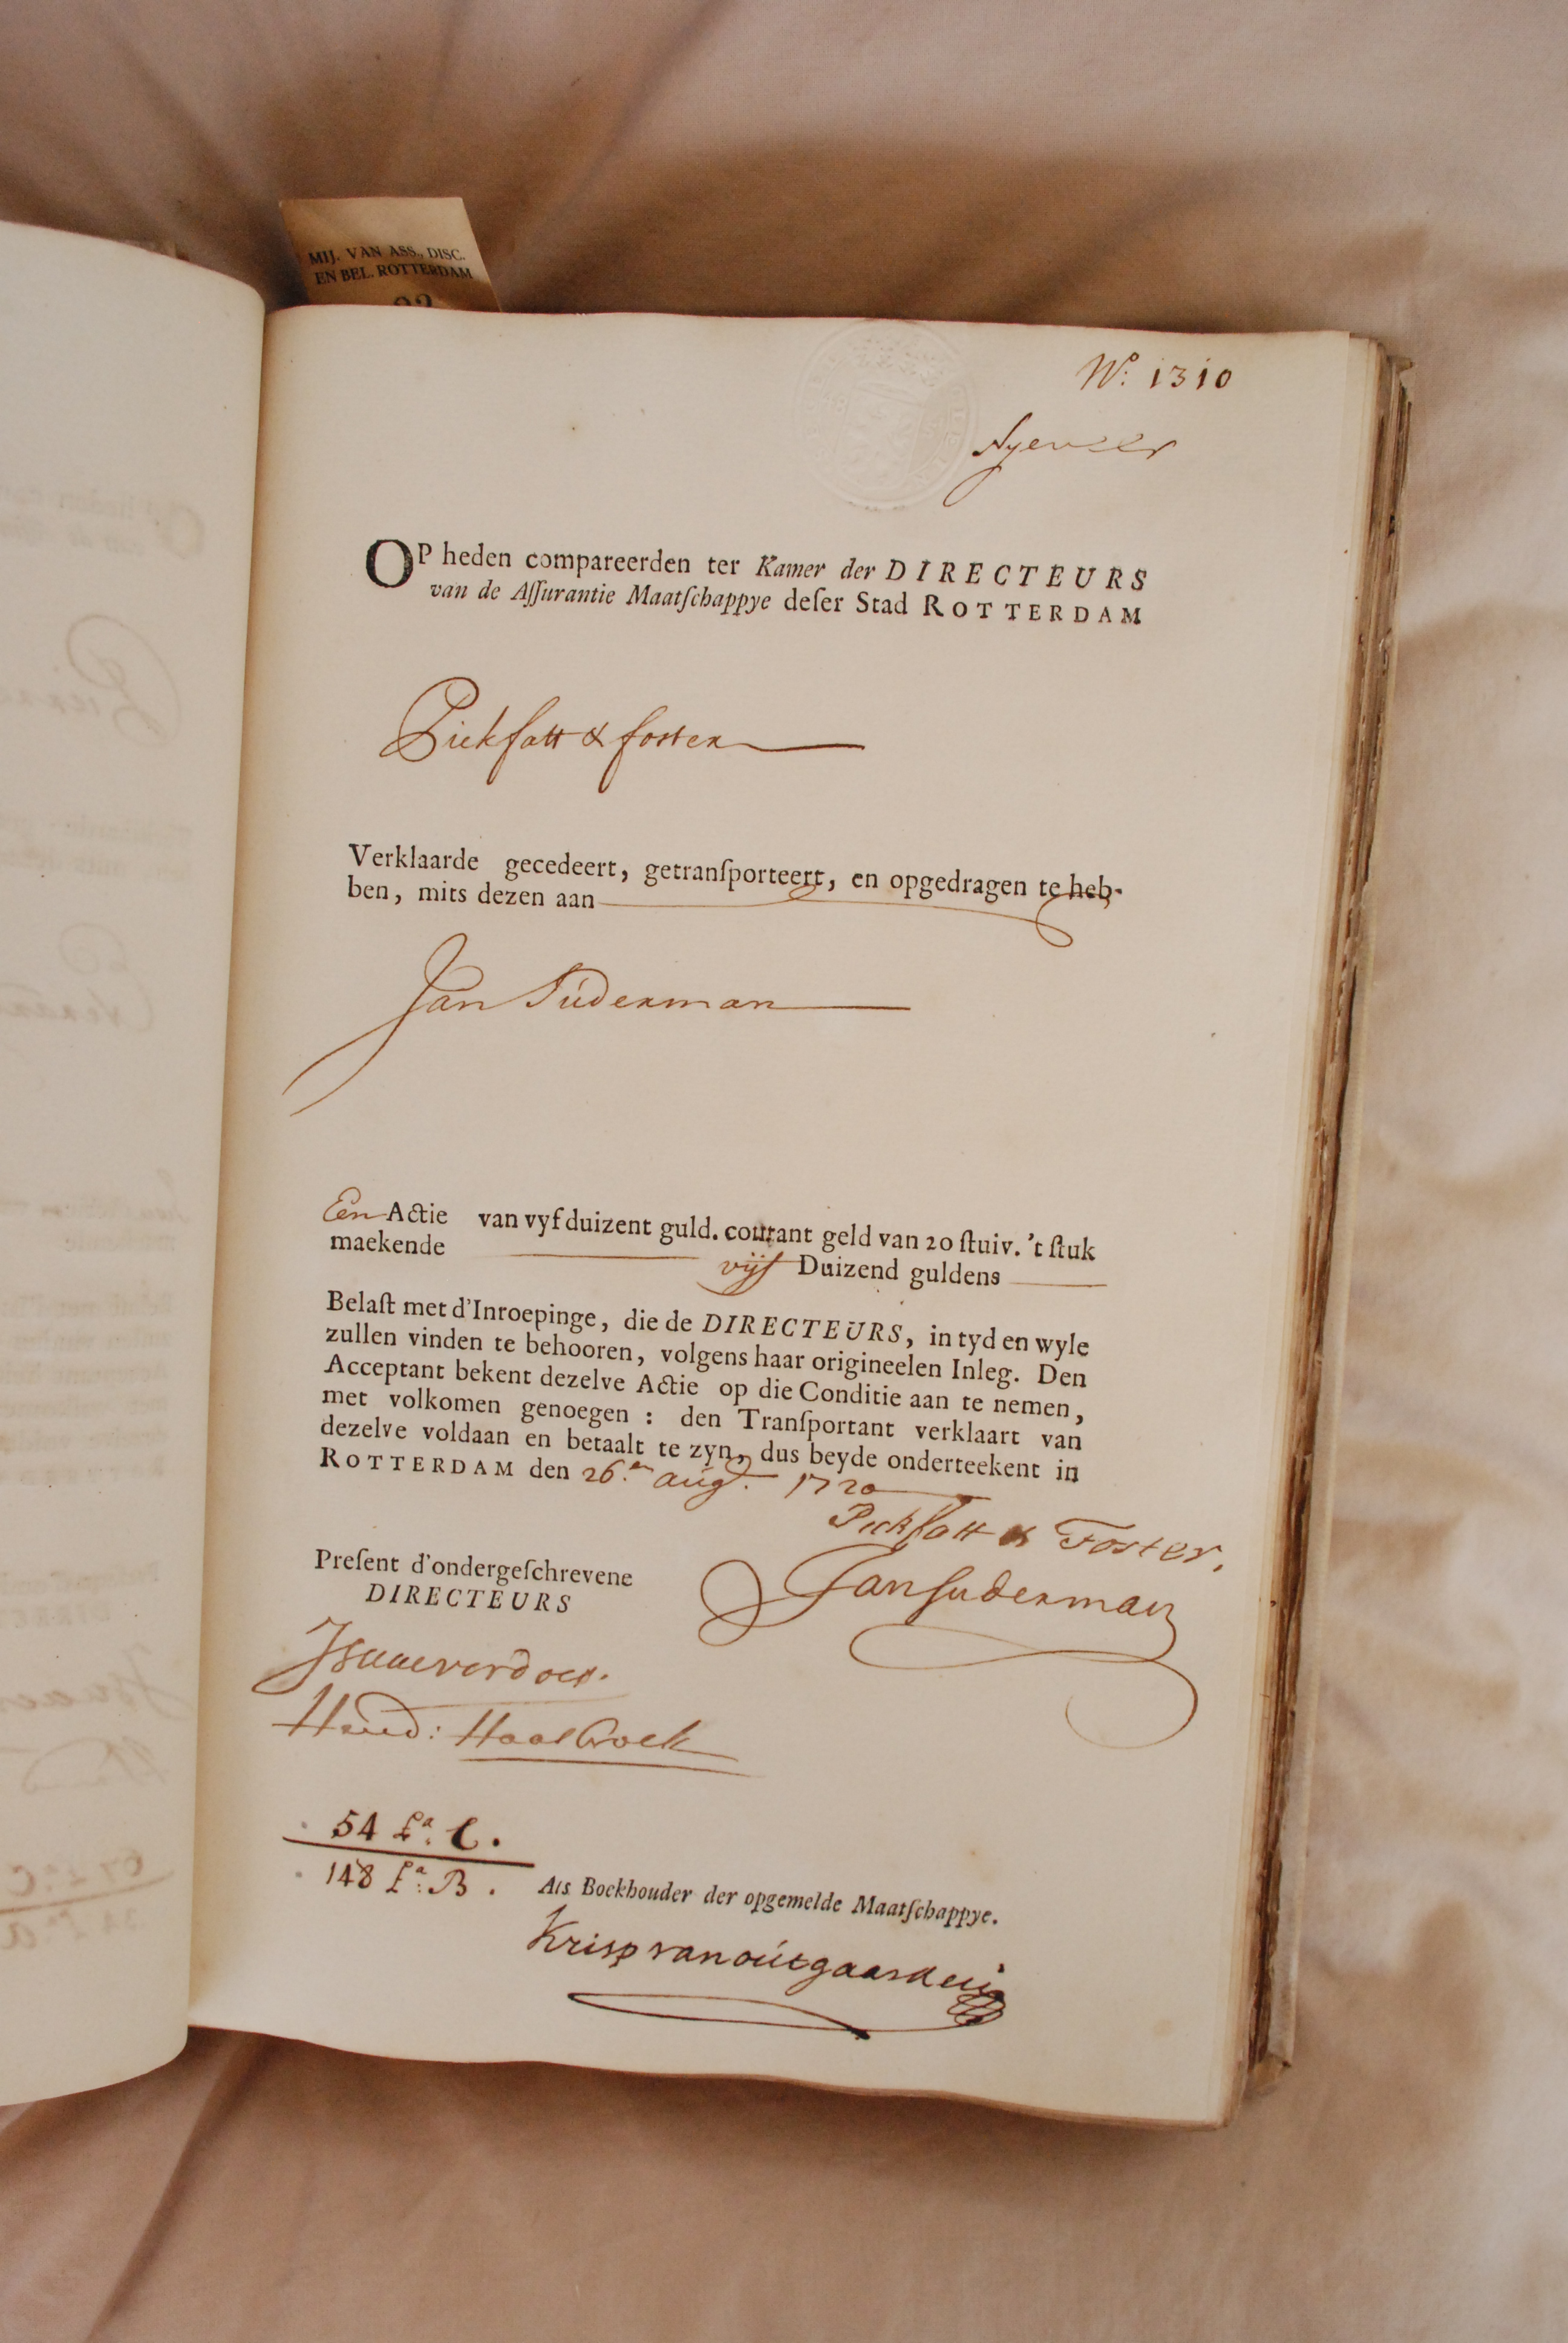 MIJ. VAN ASS., DISC.
EN BEL. ROTTERDAM
N.º 1310
OP heden compareerden ter Kamer der DIRECTEURS
van de Aſſurantie Maatſchappye deſer Stad ROTTERDAM
Pickfatt & foster
Verklaarde gecedeert, getranſporteert, en opgedragen te heb-
ben, mits dezen aan
Jan Súderman
Een Actie van vyf duizent guld. courant geld van 20 ſtuiv. 't ſtuk
maekende vijf Duizend guldens
Belaſt met d'Inroepinge, die de DIRECTEURS, in tyd en wyle
zullen vinden te behooren, volgens haar origineelen Inleg. Den
Acceptant bekent dezelve Actie op die Conditie aan te nemen,
met volkomen genoegen : den Tranſportant verklaart van
dezelve voldaan en betaalt te zyn, dus beyde onderteekent in
ROTTERDAM den 26.en aúg. 1720
Pickfatt & Foster.
Jan Suderman
Preſent d'ondergeſchrevene
DIRECTEURS
Hend: Haesbroek
54 Lª: C.
148 Lª: B.
Als Boekhouder der opgemelde Maatſchappye.
Krisp van oútgaarden